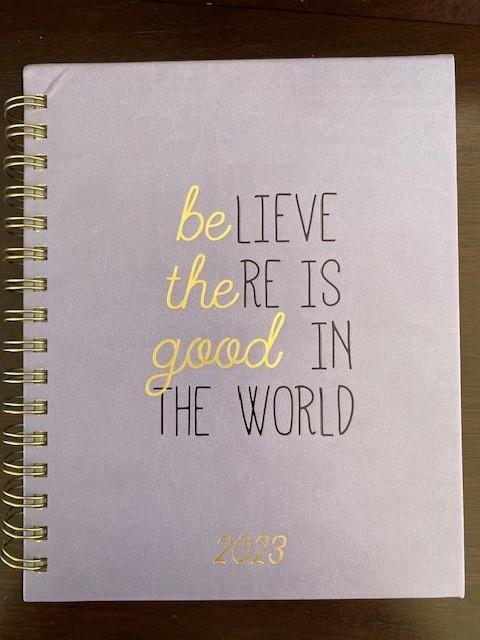 beLIEVE
theRE IS
good IN
THE WORLD
2023